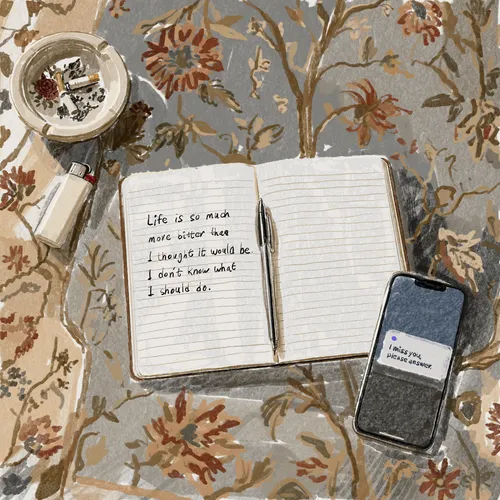 Life is so much
more bitter than
I thought it would be.
I don't know what
I should do.
I miss you,
please answer.